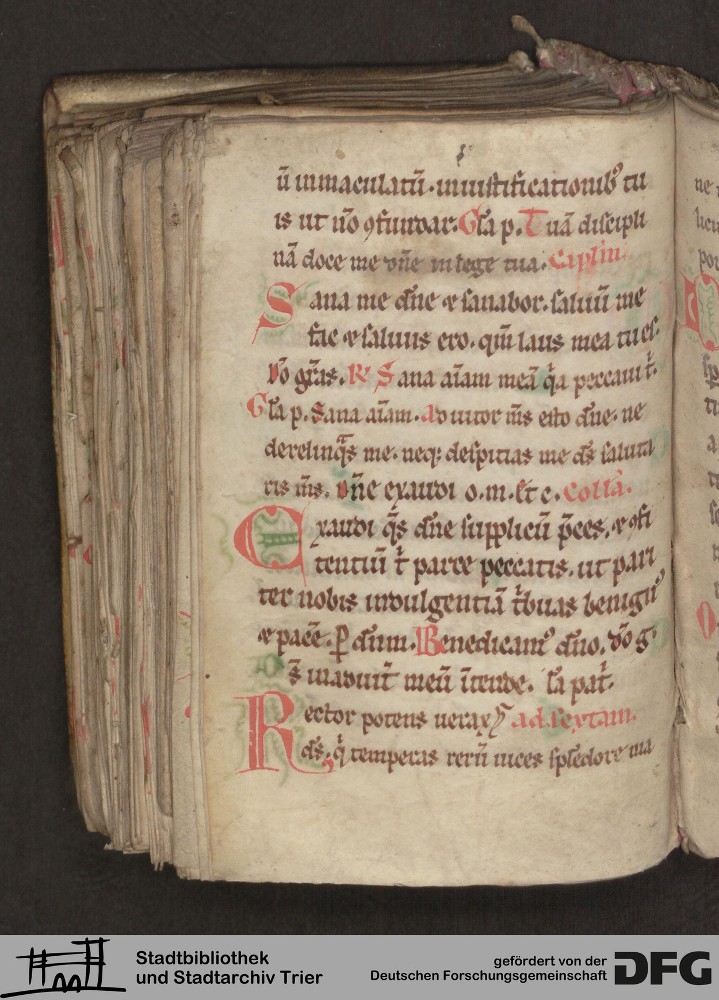 ū inmaculatū. in iustificationib᷒ tu
is ut nō ꝯfundar. Gl̄a p. Tuā discipli
nā doce me dn̄e in lege tua. Caplm̄.
Sana me dn̄e ⁊ sanabor. saluū me
fac ⁊ saluus ero. qm̄ laus mea tu es.
Dō gr̄as. R Sana aīam meā q̄a peccaui t̄.
Gl̄a p. Sana aīam. Adiutor m̄s esto dn̄e. ne
derelinq̄s me. neq; despicias me ds̄ saluta
ris m̄s. Dn̄e exaudi o. m. Et c. Coll̄a.
Exaudi q̄s dn̄e supplicū p̄ces. ⁊ ꝯfi
tentiū t̄ parce peccatis. ut pari
ter nobis indulgentiā t̄buas benign᷒
⁊ pacē. P̄ dn̄m. Benedicam᷒ dn̄o. Dō ḡ.
D̄s in adiut̄ meū ītende. Gl̄a pat̄.
Rector potens uerax ad sextam.
ds̄. q̄ temperas rerū uices splēdore ma
Stadtbibliothek
und Stadtarchiv Trier
gefördert von der
Deutschen Forschungsgemeinschaft
DFG